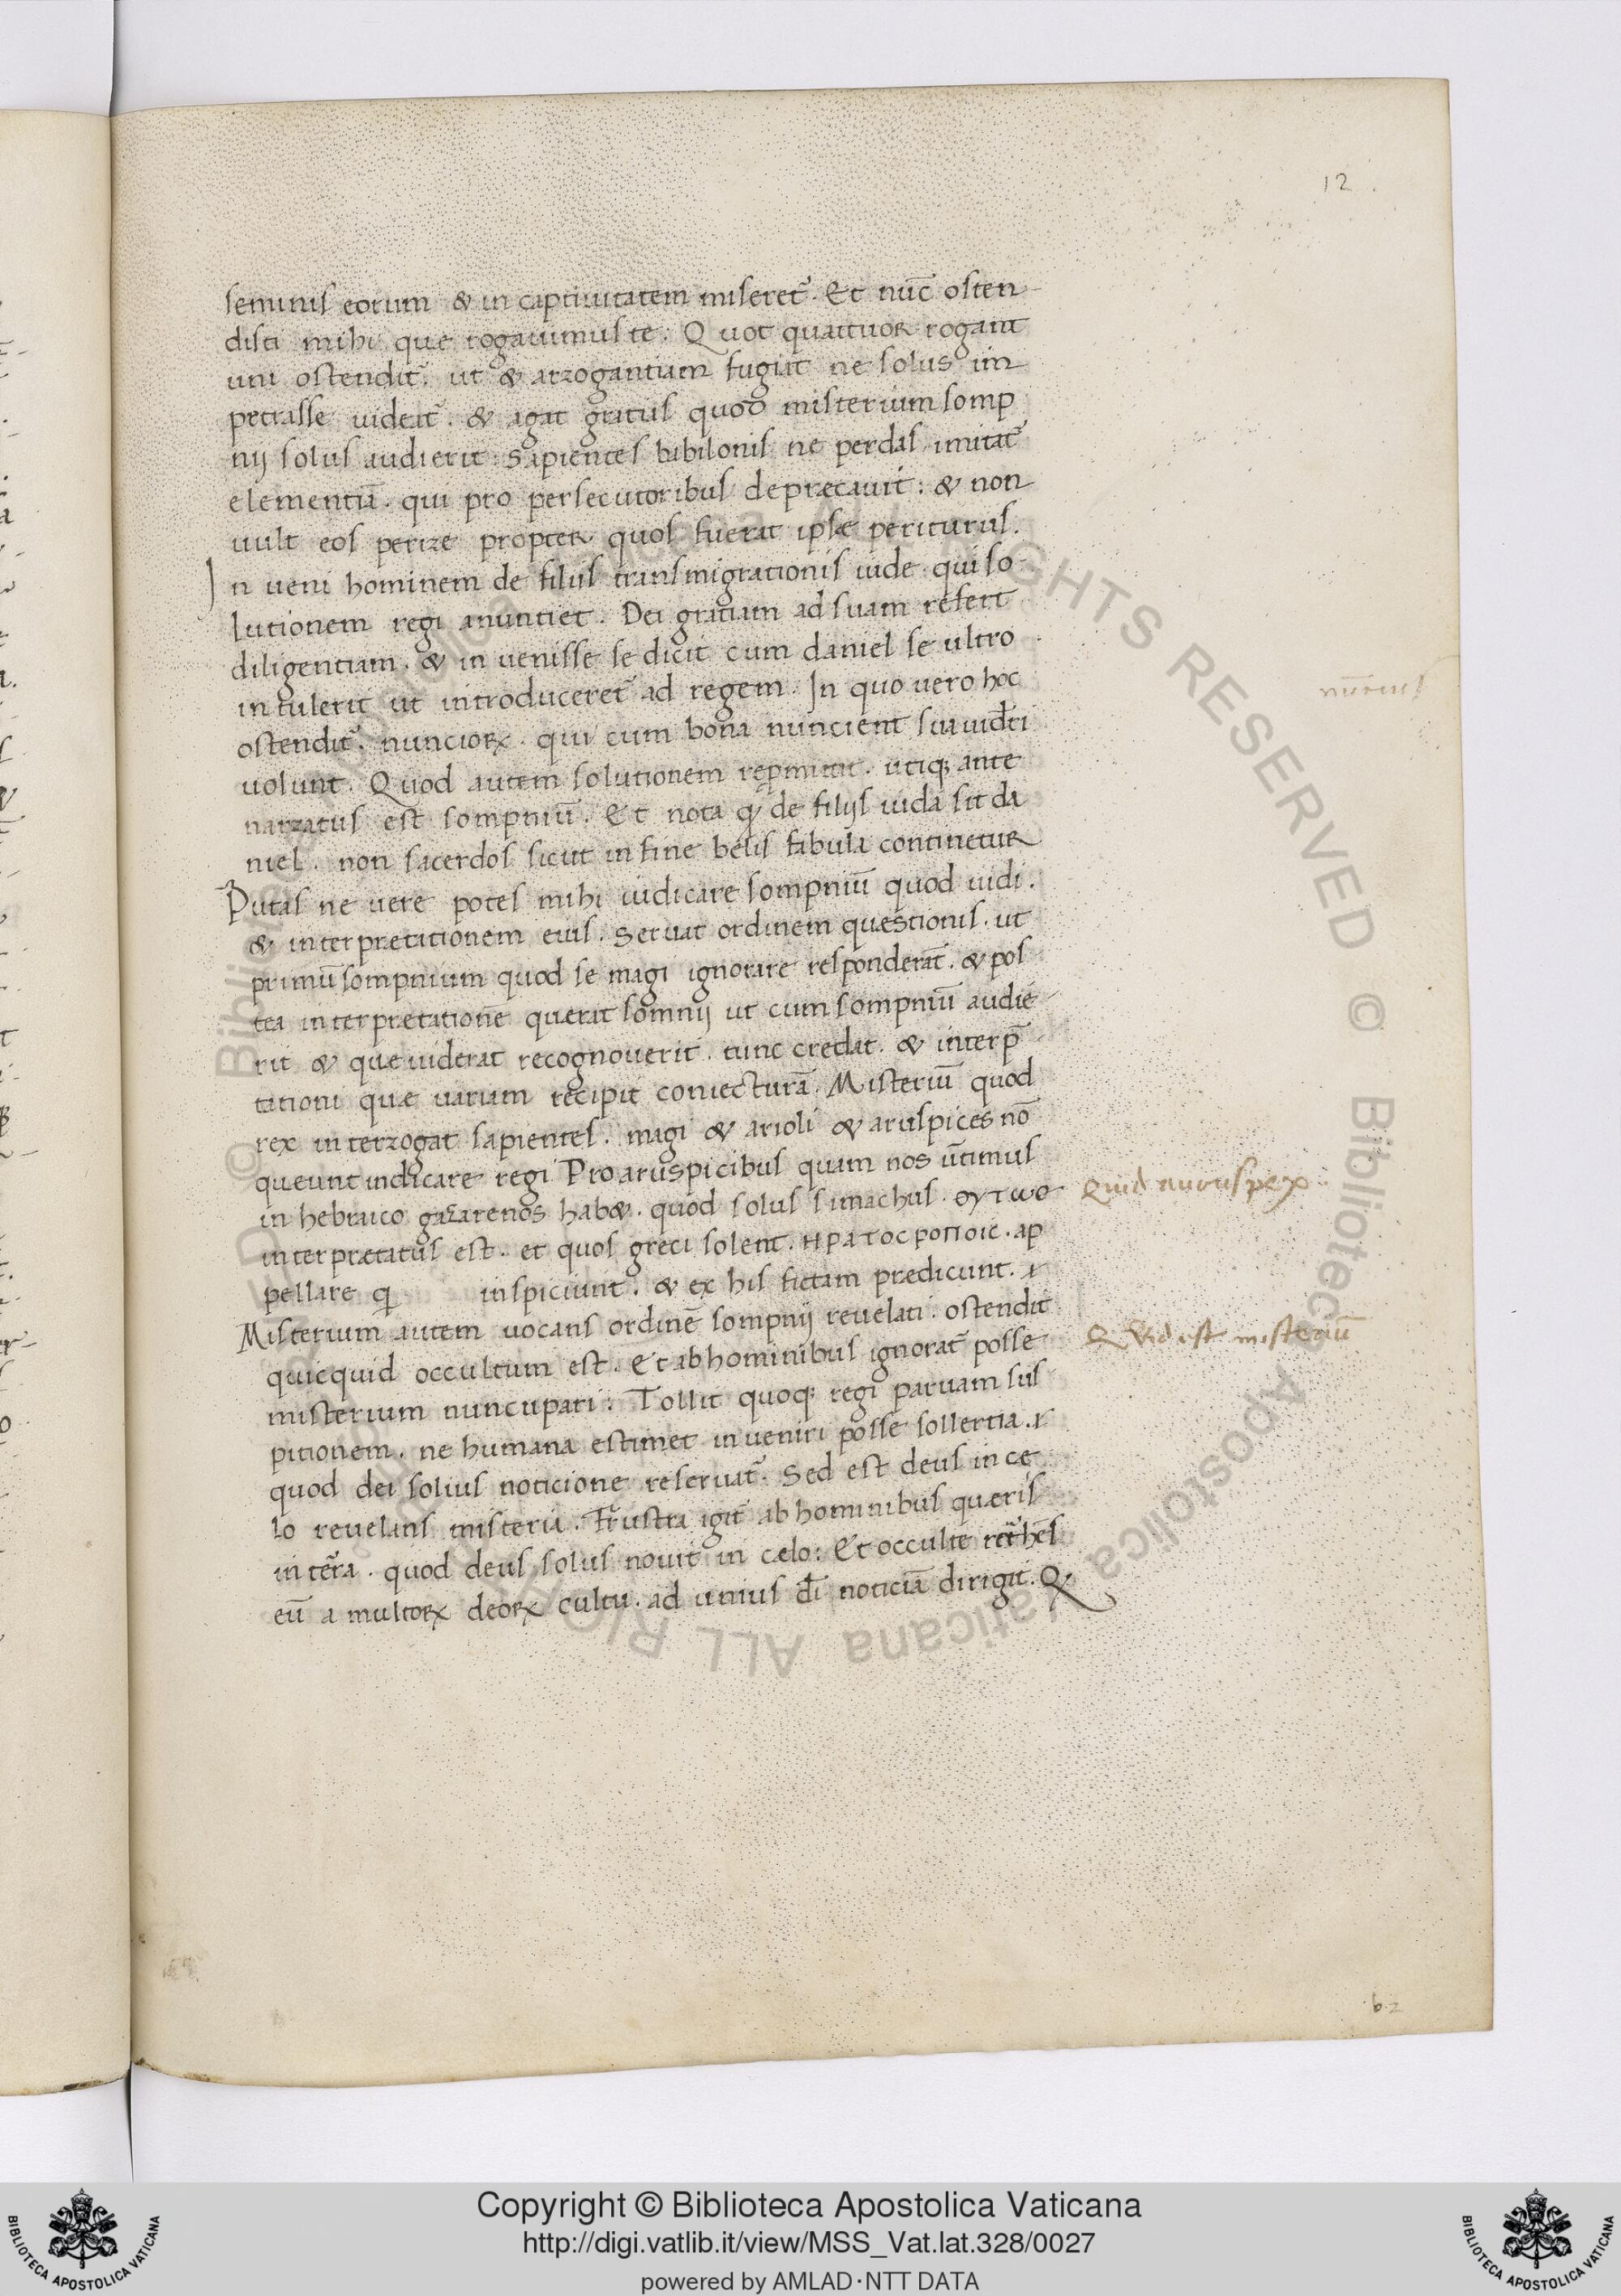 12
seminis eorum & in captiuitatem miseret᷑. Et nūc osten
disti mihi que rogauimus te. Quot quattuor rogant
uni ostendit᷑. ut & arrogantiam fugiat ne solus im
petrasse uideat᷑. & agat gratias quod misterium somp
nij solus audierit. Sapientes babilonis ne perdas imitat᷑
elementiā. qui pro persecutoribus deprecauit: & non
uult eos perire propter quos fuerat ipse periturus.
In ueni hominem de filiis transmigrationis iude qui so
lutionem regi anuntiet. Dei gratiam ad suam refert
diligentiam. & in uenisse se dicit cum daniel se ultro
intulerit ut introduceret᷑ ad regem. In quo uero hoc
nūtius
ostendit᷑. nuncioꝝ. qui cum bona nuncient sua uid̄ri
uolunt. Quod autem solutionem repmitit. utiqꝫ ante
narratus est sompniū. Et nota qđ de filijs iuda sit da
niel. non sacerdos sicut in fine belis fabula continetur
Putas ne uere potes mihi iudicare sompniū quod uidi.
& interpretationem eius. Seruat ordinem quæstionis. ut
primū sompnium quod se magi ignorare responderāt. & pos
tea interpretationē querat somnij ut cum sompniū audie
rit & que uiderat recognouerit. tunc credat. & interp̄
tationi quæ uarium recipit coniecturā. Misteriū quod
rex interrogat sapientes. magi & arioli & aruspices nō
queunt indicare regi Pro aruspicibus quam nos ūtimus
Quid auruspex
in hebraico gazarenos hab&. quod solus simachus. ΘΥΤωΘ
interprætatus est. et quos greci solent. ΗΡΑΤΟCΡΟΠΟΙC. ap
pellare q inspiciunt. & ex his fictam predicunt.
Misterium autem uocans ordinē sompnij reuelati. ostendit
Quid est misteriū
quicquid occultum est. Et ab hominibus ignorat᷑ posse
misterium nuncupari: Tollit quoqꝫ regi paruam sus
pitionem. ne humana estimet inueniri posse sollertia.
quod dei solius noticione reseruat᷑. Sed est deus in ce
lo reuelans misteria. Frustra igit᷑ ab hominibus quæris
in ter̄ra. quod deus solus nouit in cælo: Et occulte ret᷑hēs
eū a multoꝝ deoꝝ cultu. ad unius dī noticiā dirigit. Q
b.2
Copyright © Biblioteca Apostolica Vaticana
http://digi.vatlib.it/view/MSS_Vat.lat.328/0027
powered by AMLAD·NTT DATA
BIBLIOTECA APOSTOLICA VATICANA
BIBLIOTECA APOSTOLICA VATICANA